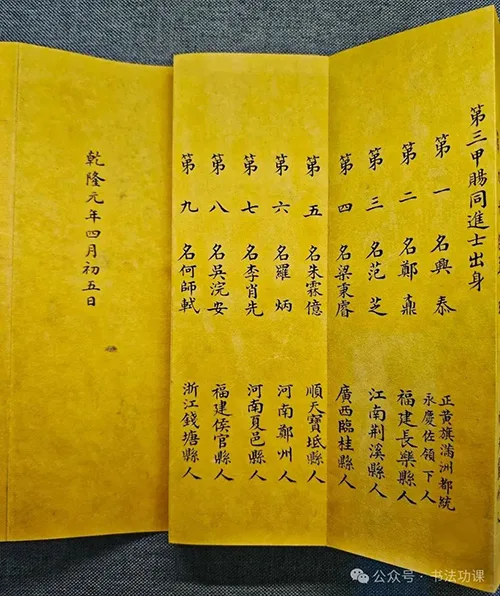 第三甲賜同進士出身
第一名興泰 正黃旗滿洲都統
永慶佐領下人
第二名鄭 福建長樂縣人
第三名范芝 江南荆溪縣人
第四名梁秉睿 廣西臨桂縣人
第五名朱霖億 順天寶坻縣人
第六名羅炳 河南鄭州人
第七名李肖先 河南夏邑縣人
第八名吳浣安 福建侯官縣人
第九名何師軾 浙江錢塘縣人
乾隆元年四月初五日
公众号 · 书法功课